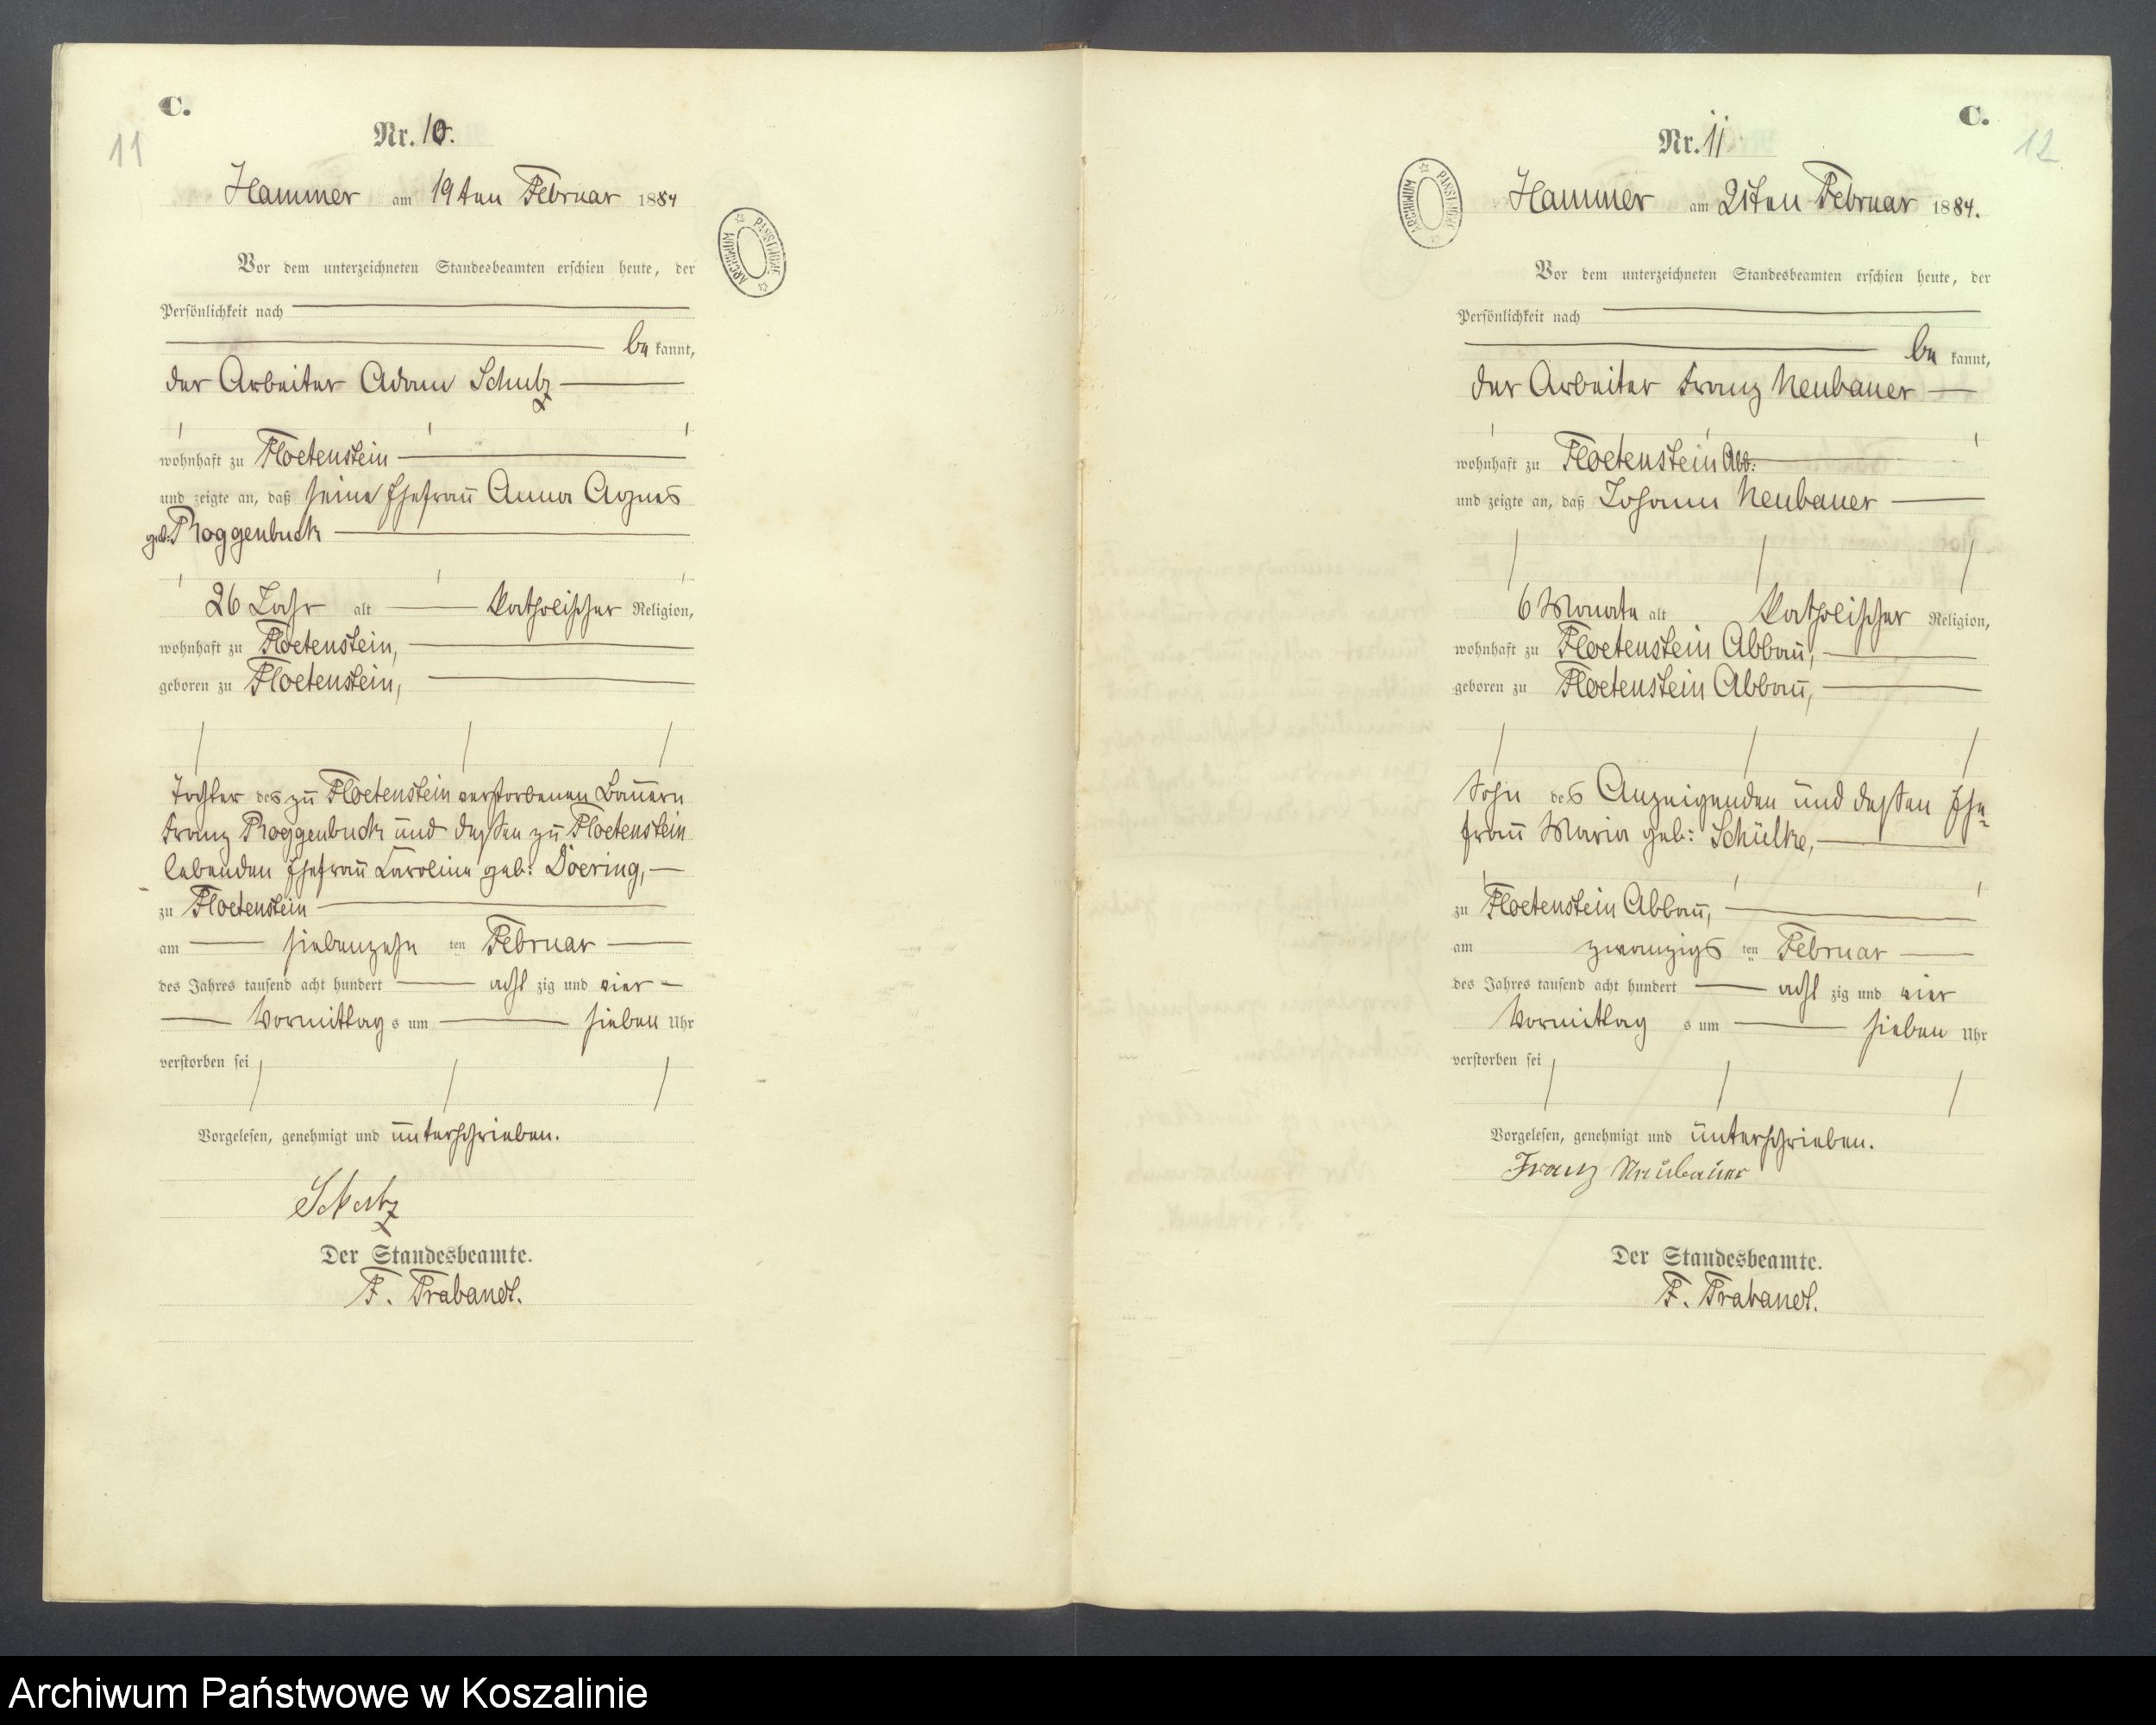 C.
11
Nr. 10.
Hammer am 19ten Februar 1884
Vor dem unterzeichneten Standesbeamten erschien heute, der
Persönlichkeit nach
be kannt,
der Arbeiter Adam Schulz
wohnhaft zu Floetenstein
und zeigte an, daß seine Ehefrau Anna Agnes
geb. Roggenbuck
26 Jahr alt katholischer Religion,
wohnhaft zu Floetenstein,
geboren zu Floetenstein,
Tochter des zu Floetenstein verstorbenen Bauern
Franz Roggenbuck und dessen zu Floetenstein
lebenden Ehefrau Karoline geb: Doering,
zu Floetenstein
am siebenzehn ten Februar
des Jahres tausend acht hundert acht zig und vier
Vormittag s um sieben Uhr
verstorben sei
Vorgelesen, genehmigt und unterschrieben.
Schulz
Der Standesbeamte.
F. Trabandt.
ARCHIWUM PAŃSTWOWE
C.
12
Nr. 11
Hammer am 21ten Februar 1884.
Vor dem unterzeichneten Standesbeamten erschien heute, der
Persönlichkeit nach
be kannt,
der Arbeiter Franz Neubauer
wohnhaft zu Floetenstein Abb.
und zeigte an, daß Johann Neubauer
6 Monate alt katholischer Religion,
wohnhaft zu Floetenstein Abbau,
geboren zu Floetenstein Abbau,
Sohn des Anzeigenden und dessen Ehe-
frau Maria geb: Schülke,
zu Floetenstein Abbau,
am zwanzigs ten Februar
des Jahres tausend acht hundert acht zig und vier
Vormittag s um sieben Uhr
verstorben sei
Vorgelesen, genehmigt und unterschrieben.
Franz Neubauer
Der Standesbeamte.
F. Trabandt.
ARCHIWUM PAŃSTWOWE
Archiwum Państwowe w Koszalinie